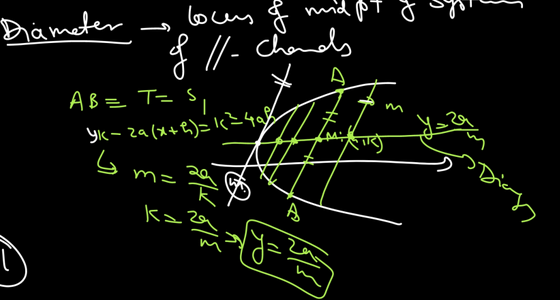 Diameter → locus of midpt of system
of //- chords
AB ≡ T = S₁
yk - 2a(x+h) = k² - 4ah
↳ m = 2a/k
k = 2a/m → y = 2a/m
A
m
M (h,k)
y = 2a/m
B
m